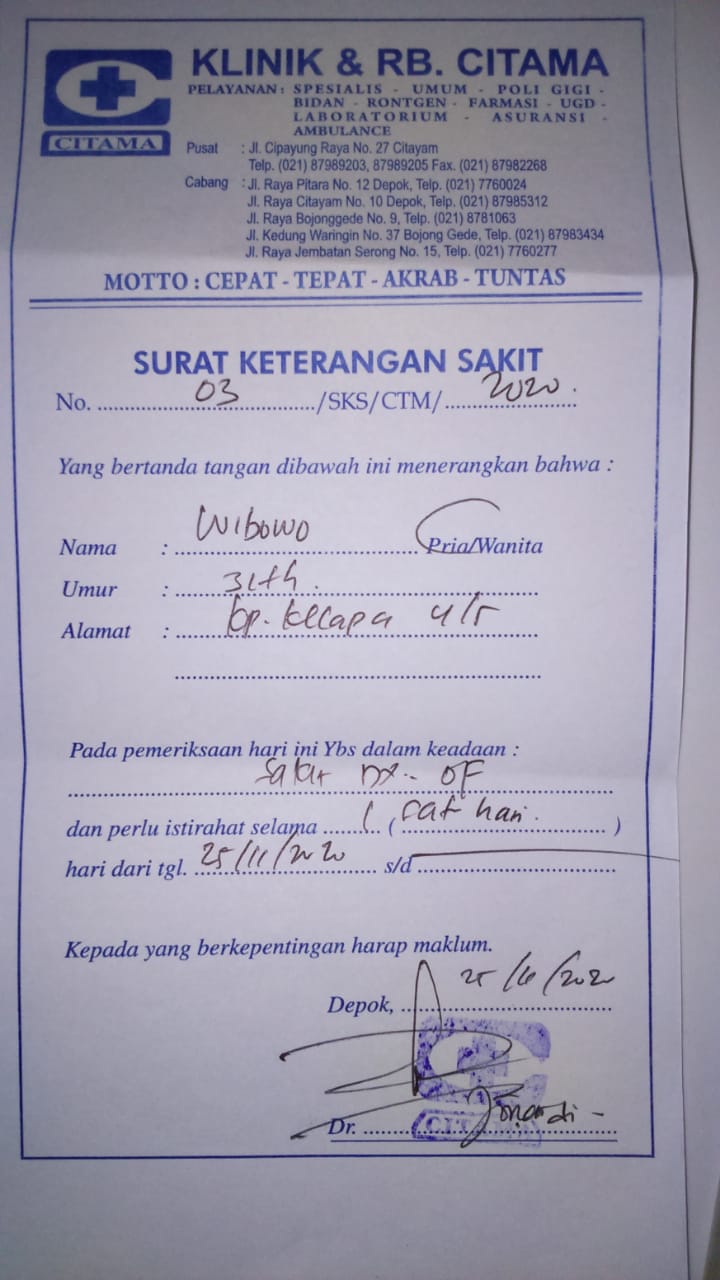 KLINIK & RB. CITAMA
CITAMA
PELAYANAN : SPESIALIS - UMUM - POLI GIGI -
BIDAN - RONTGEN - FARMASI - UGD -
LABORATORIUM - ASURANSI -
AMBULANCE
Pusat : Jl. Cipayung Raya No. 27 Citayam
Telp. (021) 87989203, 87989205 Fax. (021) 87982268
Cabang : Jl. Raya Pitara No. 12 Depok, Telp. (021) 7760024
Jl. Raya Citayam No. 10 Depok, Telp. (021) 87985312
Jl. Raya Bojonggede No. 9, Telp. (021) 8781063
Jl. Kedung Waringin No. 37 Bojong Gede, Telp. (021) 87983434
Jl. Raya Jembatan Serong No. 15, Telp. (021) 7760277
MOTTO : CEPAT - TEPAT - AKRAB - TUNTAS
SURAT KETERANGAN SAKIT
No. 03 /SKS/CTM/ 2020.
Yang bertanda tangan dibawah ini menerangkan bahwa :
Nama : Wibowo Pria/Wanita
Umur : th.
Alamat : kp. kelapa 4/5
Pada pemeriksaan hari ini Ybs dalam keadaan :
Sakit Dx.. OF
dan perlu istirahat selama 1 ( sat hari. )
hari dari tgl. 25/11/2020 s/d
Kepada yang berkepentingan harap maklum.
Depok, 25/11/2020
Dr.
CITAMA